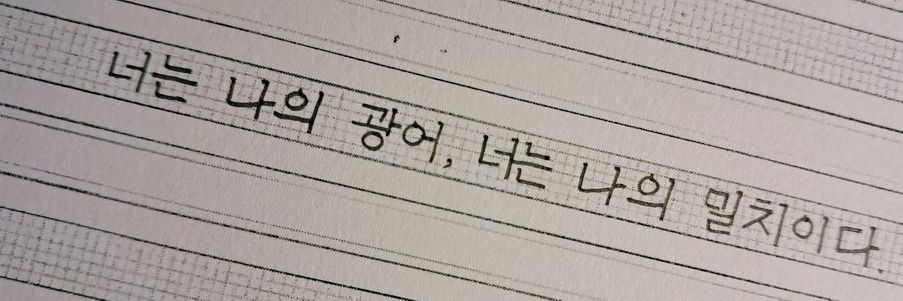 너는 나의 광어, 너는 나의 밀치이다.